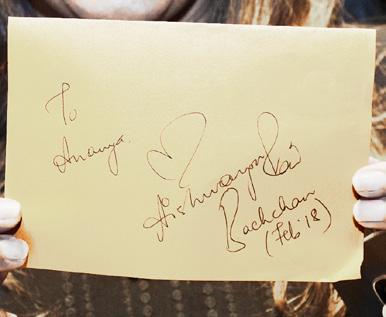 To
Ananya
Aishwarya Rai
Bachchan
(Feb '18)